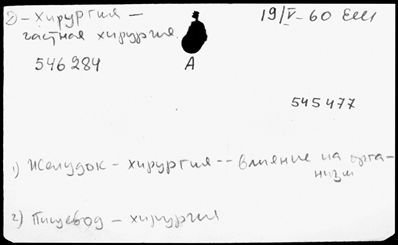 2) - хирургия -
19/V-60
частная хирургия
546284
А
545477
1) Желудок - хирургия -- влияние на орга-
низм
2) Пищевод - хирургия